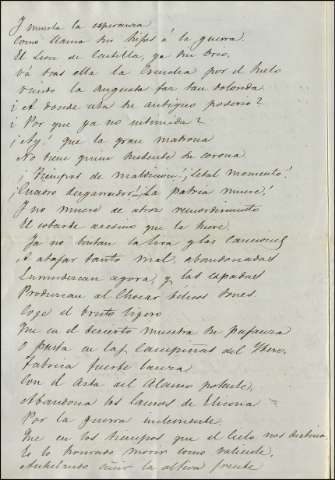 Y muerta la esperanza
Como llama sus hijos á la guerra.
El Leon de Castilla, ya sin brio,
Vá tras ella la por el suelo
Viendo la augusta faz tan dolorida
¡A donde está su antiguo poderio?
¡Por que ya no intimida?
¡Ay! que la gran matrona
No tiene quien sustente su corona
¡Tiempos de maldicion! ¡fatal momento!
¡Cuadro desgarrador! ¡La patria muere!
Y no muere de atroz remordimiento
El cobarde asesino que la hiere.
Ya no la lira y las canciones
A atajar tanto mal, abandonadas
Enmudezcan agora, y las espadas
Produzcan al chocar bélicos sones
Coge el bruto ligero
Que en el desierto muestra su pujanza
O pasta en las campiñas del Ibero,
Fabrica fuerte lanza
Con el asta del Alamo
Abandona los lauros de Elicona
Por la guerra inclemente.
Que en los tiempos que el Cielo nos destina,
Es lo honrado morir como valiente,
Anhelando ceñir la altiva frente